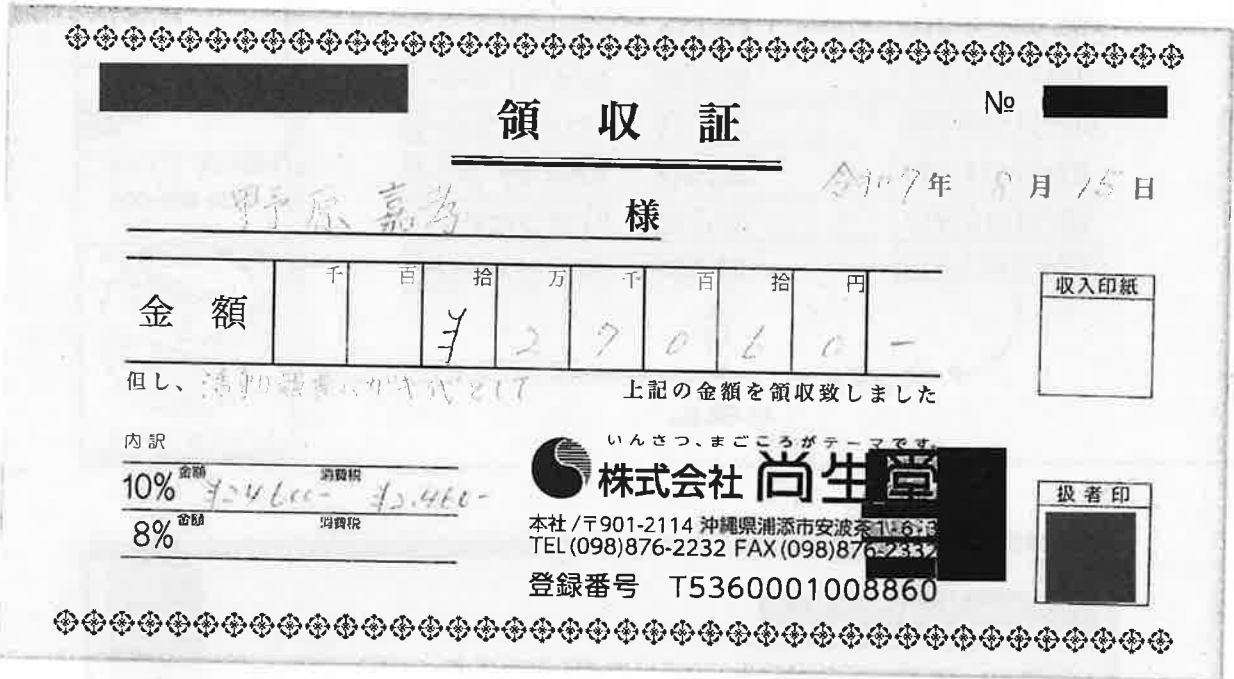 領収証
№
令和7年 8月15日
野原 嘉孝 様
千 百 拾 万 千 百 拾 円
金額 ¥27060-
但し、はがき代として 上記の金額を領収致しました
収入印紙
内訳
10% 金額 ¥24600- 消費税 ¥2.460-
8% 金額 消費税
いんさつ、まごころがテーマです。
株式会社 尚生堂
本社/〒901-2114 沖縄県浦添市安波茶1-6-3
TEL(098)876-2232 FAX(098)876-2332
登録番号 T5360001008860
扱者印